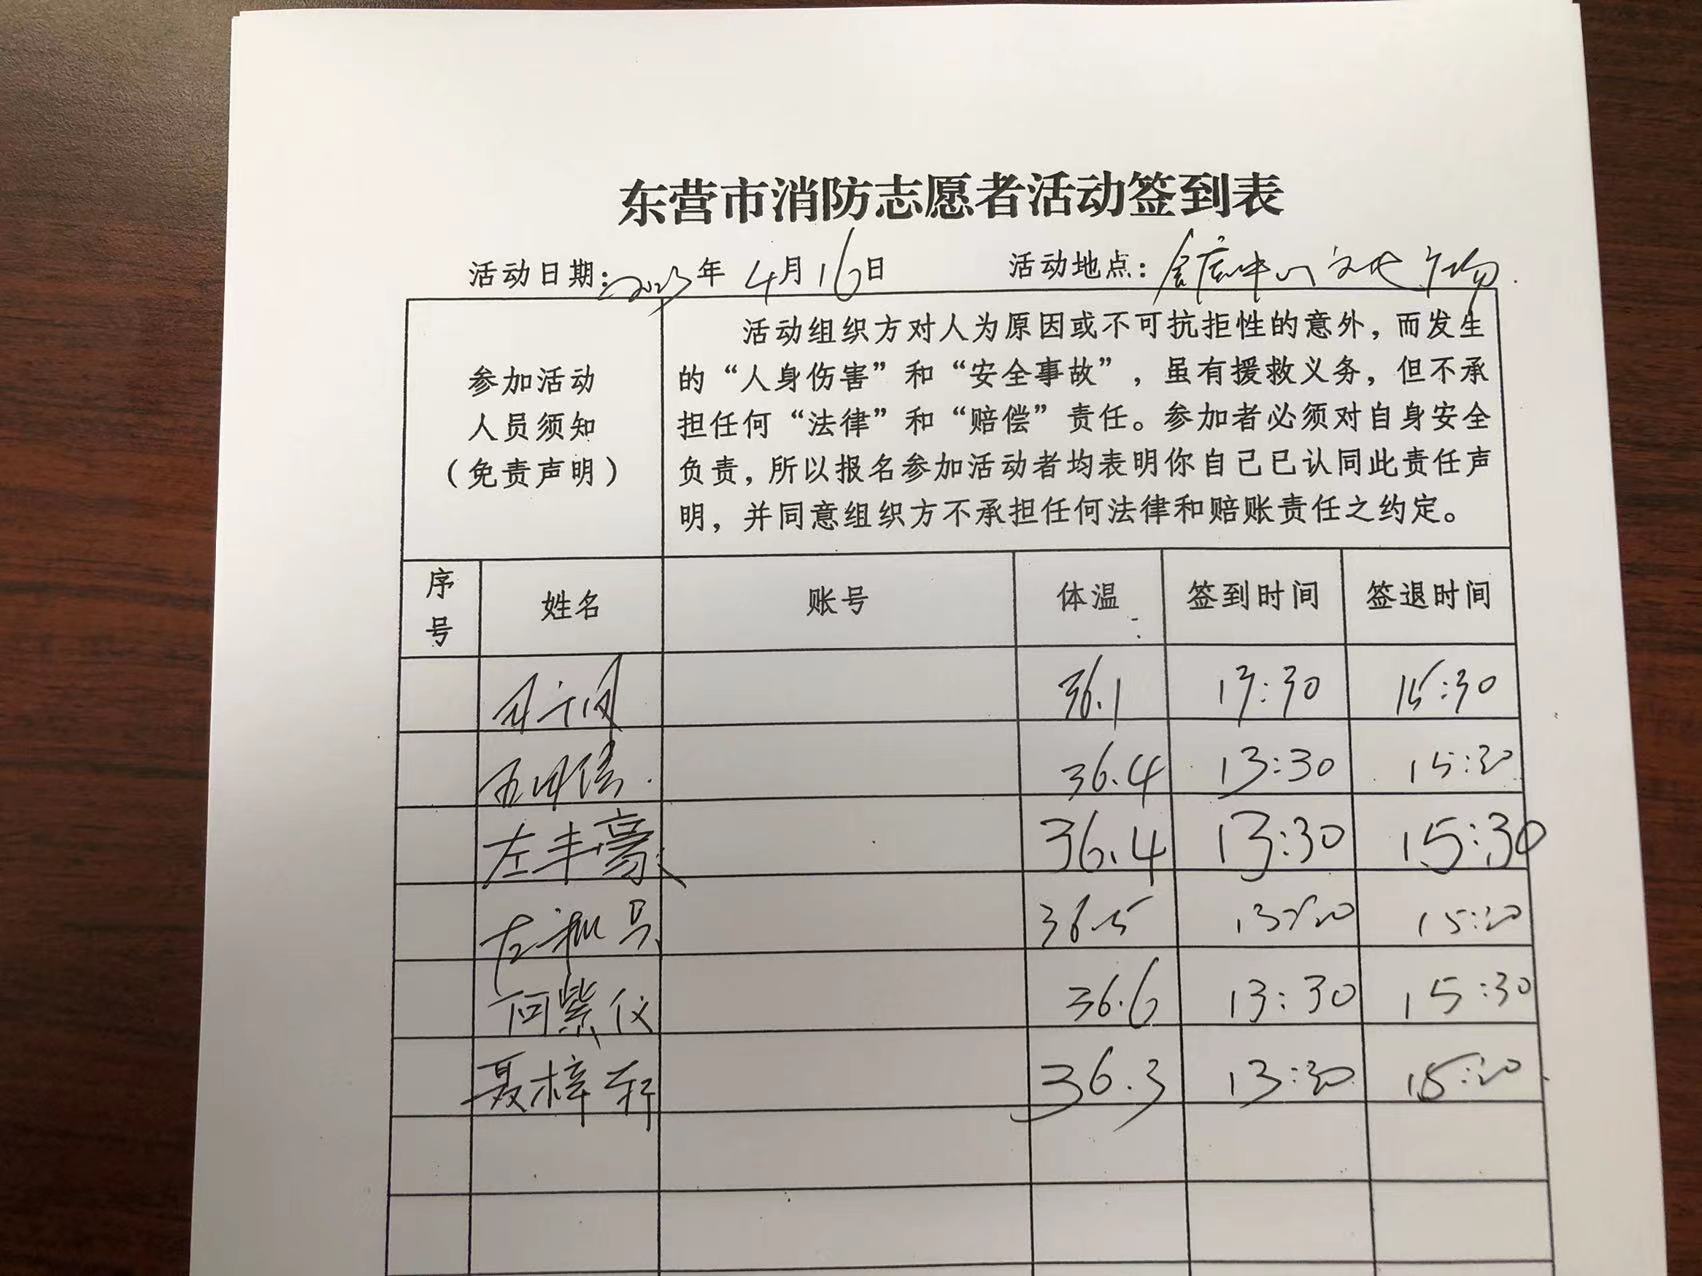 东营市消防志愿者活动签到表
活动日期：2023年 4月16日 活动地点：
参加活动
人员须知
（免责声明）
活动组织方对人为原因或不可抗拒性的意外，而发生
的“人身伤害”和“安全事故”，虽有援救义务，但不承
担任何“法律”和“赔偿”责任。参加者必须对自身安全
负责，所以报名参加活动者均表明你自己已认同此责任声
明，并同意组织方不承担任何法律和赔账责任之约定。
序号 姓名 账号 体温 签到时间 签退时间
36.1 13:30 15:30
36.4 13:30 15:30
左丰豪 36.4 13:30 15:30
36.5 13:30 15:30
何紫仪 36.6 13:30 15:30
聂梓轩 36.3 13:30 15:30